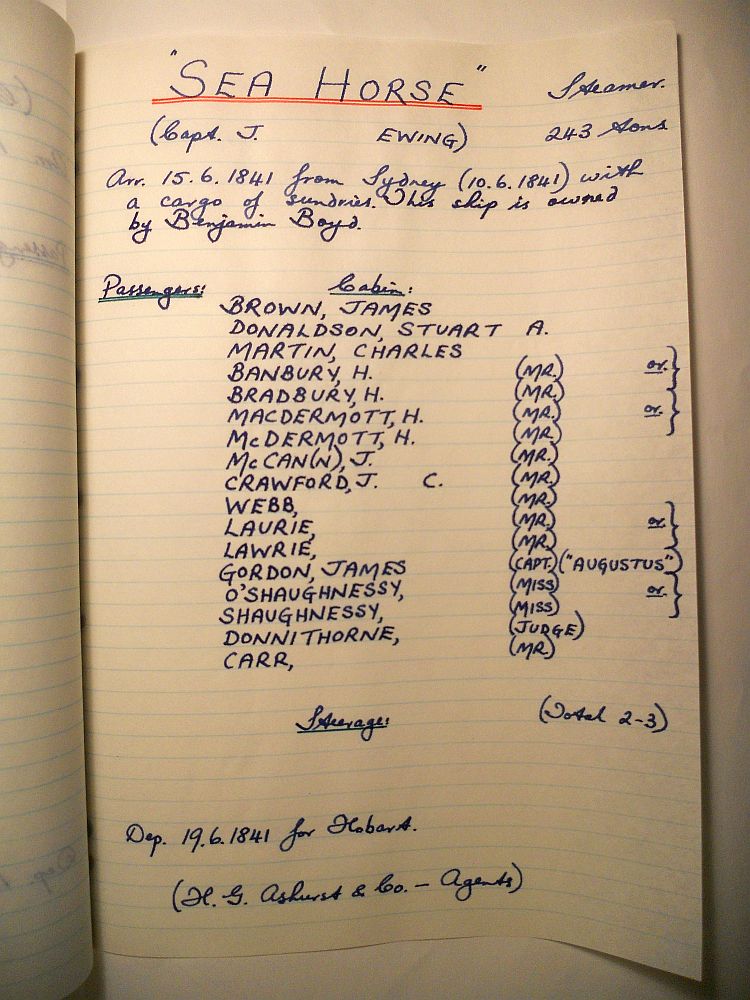 "SEA HORSE" Steamer.
(Capt. J. EWING) 243 tons
Arr. 15.6.1841 from Sydney (10.6.1841) with
a cargo of sundries. This ship is owned
by Benjamin Boyd.
Passengers: Cabin:
BROWN, JAMES
DONALDSON, STUART A.
MARTIN, CHARLES
BANBURY, H. (MR.) or }
BRADBURY, H. (MR.)
MACDERMOTT, H. (MR.) or }
McDERMOTT, H. (MR.)
McCAN(N), J. (MR.)
CRAWFORD, J. C. (MR.)
WEBB, (MR.)
LAURIE, (MR.) or }
LAWRIE, (MR.)
GORDON, JAMES (CAPT.) ("AUGUSTUS")
O'SHAUGHNESSY, (MISS) or }
SHAUGHNESSY, (MISS)
DONNITHORNE, (JUDGE)
CARR, (MR.)
Steerage: (Total 2-3)
Dep. 19.6.1841 for Hobart.
(H. G. Ashurst & Co. - Agents)